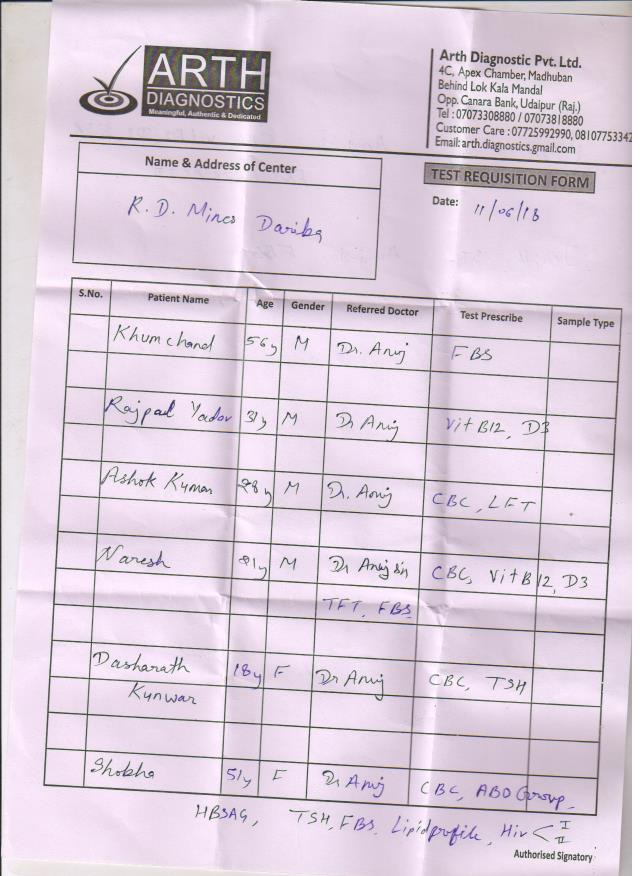 ARTH
DIAGNOSTICS
Meaningful, Authentic & Dedicated
Arth Diagnostic Pvt. Ltd.
4C, Apex Chamber, Madhuban
Behind Lok Kala Mandal
Opp. Canara Bank, Udaipur (Raj.)
Tel : 07073308880 / 0707381 8880
Customer Care : 07725992990, 0810775334
Email: arth.diagnostics.gmail.com
Name & Address of Center
R.D. Mines Dariba
TEST REQUISITION FORM
Date: 11/06/18
S.No. Patient Name Age Gender Referred Doctor Test Prescribe Sample Type
Khumchand 56y M Dr. Anuj FBS
Rajpal Yadav 31y M Dr Anuj Vit B12, D3
Ashok Kumar 28y M Dr. Anuj CBC, LFT
Naresh M Dr Anuj CBC, Vit B12, D3
TFT, FBS
Dasharath 18y F Dr Anuj CBC, TSH
Kunwar
Shobha 51y F Dr Anuj CBC, ABO Group,
HBSAG, TSH, FBS, Lipid profile, Hiv < I
II
Authorised Signatory